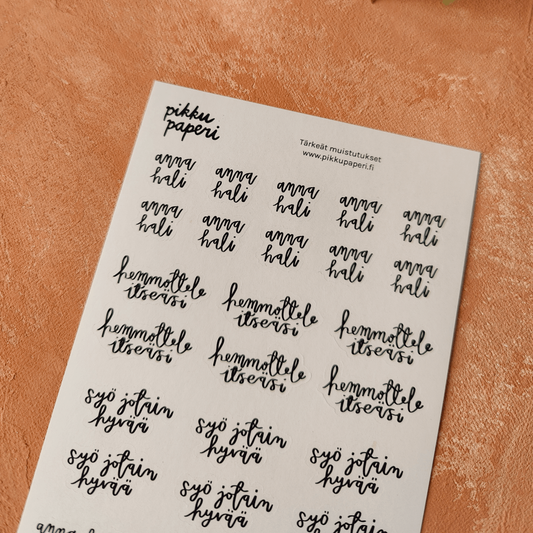 pikku
paperi
Tärkeät muistutukset
www.pikkupaperi.fi
anna anna anna anna anna
hali hali hali hali hali
anna anna anna anna anna
hali hali hali hali hali
hemmottele hemmottele hemmottele
itseäsi itseäsi itseäsi
hemmottele hemmottele hemmottele
itseäsi itseäsi itseäsi
syö jotain syö jotain syö jotain
hyvää hyvää hyvää
syö jotain syö jotain syö jotain
hyvää hyvää hyvää
syö jotain
anna